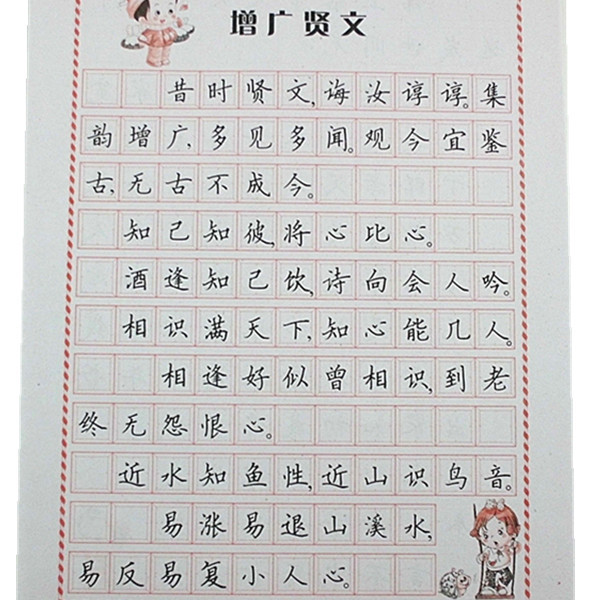 增广贤文
昔时贤文,诲汝谆谆。集
韵增广,多见多闻。观今宜鉴
古,无古不成今。
知己知彼,将心比心。
酒逢知己饮,诗向会人吟。
相识满天下,知心能几人。
相逢好似曾相识,到老
终无怨恨心。
近水知鱼性,近山识鸟音。
易涨易退山溪水,
易反易复小人心。